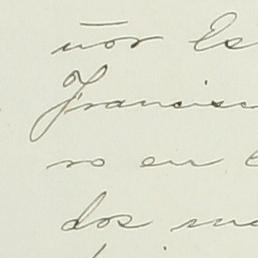 ñor Es
Francisc
ro en
dos